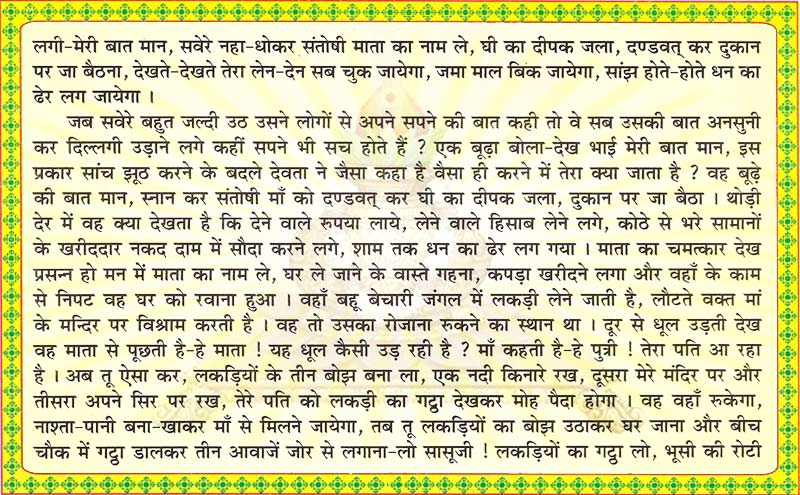 लगी-मेरी बात मान, सवेरे नहा-धोकर संतोषी माता का नाम ले, घी का दीपक जला, दण्डवत् कर दुकान
पर जा बैठना, देखते-देखते तेरा लेन-देन सब चुक जायेगा, जमा माल बिक जायेगा, सांझ होते-होते धन का
ढेर लग जायेगा ।
जब सवेरे बहुत जल्दी उठ उसने लोगों से अपने सपने की बात कही तो वे सब उसकी बात अनसुनी
कर दिल्लगी उड़ाने लगे कहीं सपने भी सच होते हैं ? एक बूढ़ा बोला-देख भाई मेरी बात मान, इस
प्रकार सांच झूठ करने के बदले देवता ने जैसा कहा है वैसा ही करने में तेरा क्या जाता है ? वह बूढ़े
की बात मान, स्नान कर संतोषी माँ को दण्डवत् कर घी का दीपक जला, दुकान पर जा बैठा । थोड़ी
देर में वह क्या देखता है कि देने वाले रुपया लाये, लेने वाले हिसाब लेने लगे, कोठे से भरे सामानों
के खरीददार नकद दाम में सौदा करने लगे, शाम तक धन का ढेर लग गया । माता का चमत्कार देख
प्रसन्न हो मन में माता का नाम ले, घर ले जाने के वास्ते गहना, कपड़ा खरीदने लगा और वहाँ के काम
से निपट वह घर को रवाना हुआ । वहाँ बहू बेचारी जंगल में लकड़ी लेने जाती है, लौटते वक्त मां
के मन्दिर पर विश्राम करती है । वह तो उसका रोजाना रुकने का स्थान था । दूर से धूल उड़ती देख
वह माता से पूछती है-हे माता ! यह धूल कैसी उड़ रही है ? माँ कहती है-हे पुत्री ! तेरा पति आ रहा
है । अब तू ऐसा कर, लकड़ियों के तीन बोझ बना ला, एक नदी किनारे रख, दूसरा मेरे मंदिर पर और
तीसरा अपने सिर पर रख, तेरे पति को लकड़ी का गट्ठा देखकर मोह पैदा होगा । वह वहाँ रुकेगा,
नाश्ता-पानी बना-खाकर माँ से मिलने जायेगा, तब तू लकड़ियों का बोझ उठाकर घर जाना और बीच
चौक में गट्ठा डालकर तीन आवाजें जोर से लगाना-लो सासूजी ! लकड़ियों का गट्ठा लो, भूसी की रोटी